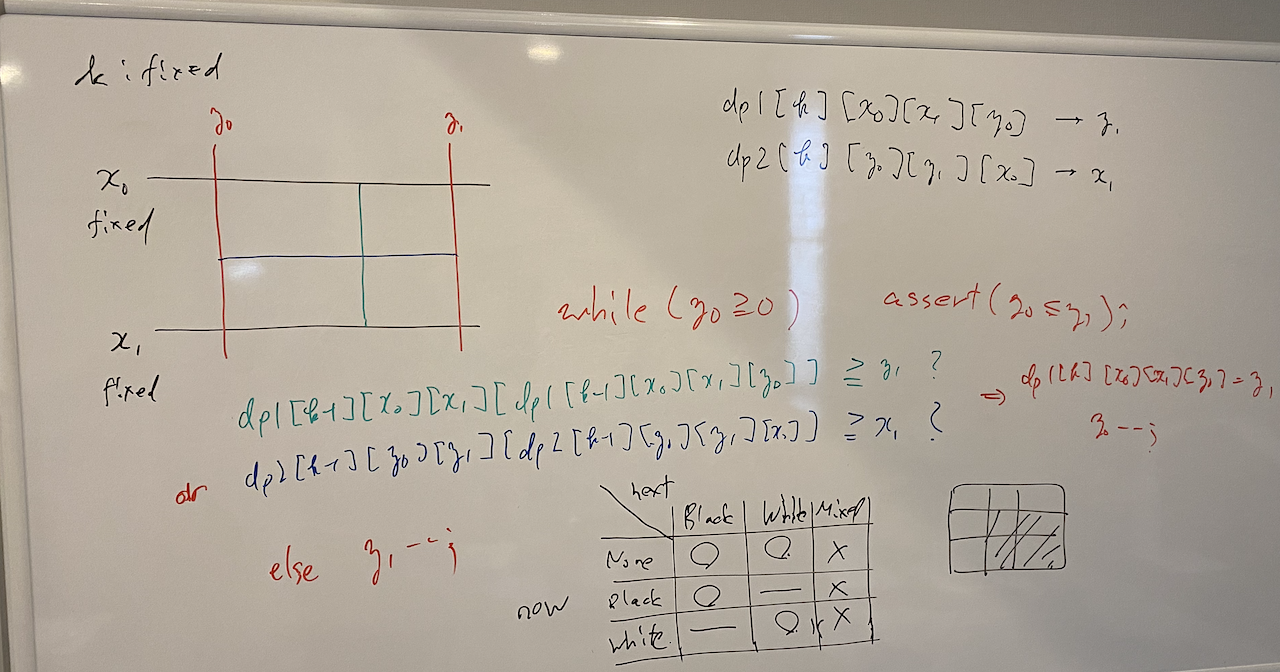 k : fixed
y₀ y₁
x₀
fixed
x₁
fixed
dp1[k][x₀][x₁][y₀] → y₁
dp2[k][y₀][y₁][x₀] → x₁
while (y₀ ≧ 0) assert(y₀ ≤ y₁);
dp1[k-1][x₀][x₁][dp1[k-1][x₀][x₁][y₀]] ≧ y₁ ?
⇒ dp1[k][x₀][x₁][y₀] = y₁
y₀--;
or dp2[k-1][y₀][y₁][dp2[k-1][y₀][y₁][x₀]] ≧ x₁ ?
else y₁--;
next
Black White Mixed
None ○ ○ ×
now Black ○ — ×
White — ○ ×